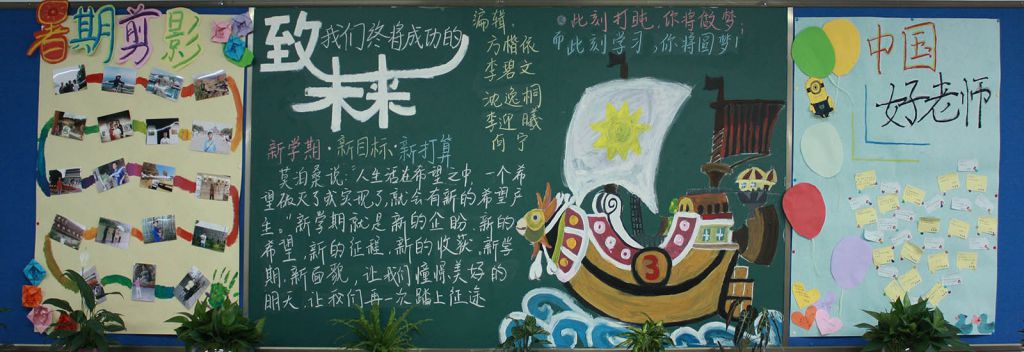 暑期剪影
致我们终将成功的
未来
编辑:
方楷依
李碧文
沈逸桐
李迎曦
向宁
此刻打盹,你将做梦;
此刻学习,你将圆梦!
新学期·新目标·新打算
莫泊桑说:“人生活在希望之中,一个希
望破灭了或实现了,就会有新的希望产
生。”新学期就是新的企盼、新的
希望,新的征程,新的收获.新学
期,新面貌,让我们憧憬美好的
明天,让我们再一次踏上征途
3
中国
好老师